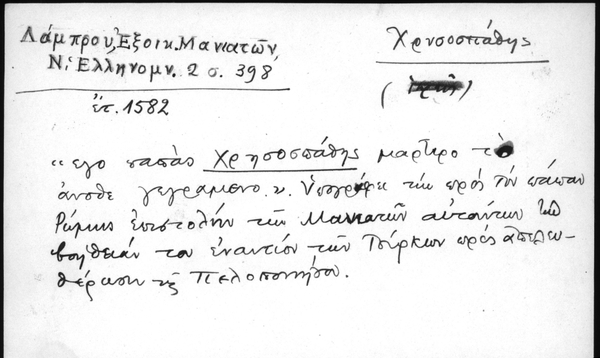 Λάμπρου, Ἐξοικ. Μανιατῶν,
Ν. Ἑλληνομν. 2 σ. 398
ἔτ. 1582
Χρυσοσπάθης
"εγο παπὰς Χρησοσπάθης μαρτιρο τ
άνοθε γεγραμενο. κ. Ὑπογράφει τὴν πρὸς τὸν πάπαν
Ρώμης ἐπιστολὴν τῶν Μανιατῶν αἰτούντων τὴν
βοήθειάν του ἐναντίον τῶν Τούρκων πρὸς ἀπελευ-
θέρωσιν τῆς Πελοποννήσου.